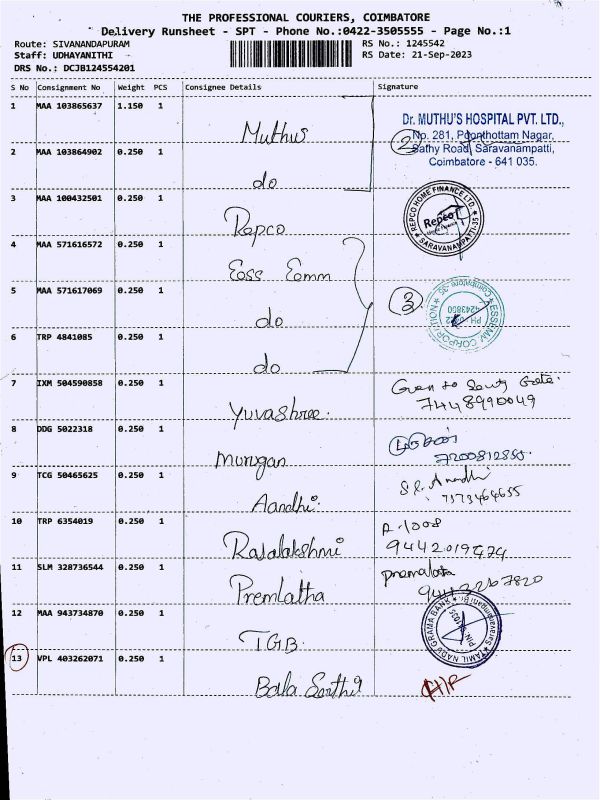 THE PROFESSIONAL COURIERS, COIMBATORE
Delivery Runsheet - SPT - Phone No.:0422-3505555 - Page No.:1
Route: SIVANANDAPURAM
Staff: UDHAYANITHI
DRS No.: DCJB124554201
RS No.: 1245542
RS Date: 21-Sep-2023
S No Consignment No Weight PCS Consignee Details Signature
1 MAA 103865637 1.150 1 Muthus
Dr. MUTHU'S HOSPITAL PVT. LTD.,
No. 281, Poonthottam Nagar,
Sathy Road, Saravanampatti,
Coimbatore - 641 035.
2
2 MAA 103864902 0.250 1 do
3 MAA 100432501 0.250 1 Repco
REPCO HOME FINANCE LTD.
Repco
Home Finance
SARAVANAMPATTI-35
4 MAA 571616572 0.250 1 Eoss Eomm
5 MAA 571617069 0.250 1 do
3
ESSEMM CORPORATION
Coimbatore-35
PH: 0422
4243850
6 TRP 4841085 0.250 1 do
7 IXM 504590858 0.250 1 Yuvashree.
7448990049
8 DDG 5022318 0.250 1 Murugan
முருகன்
9 TCG 50465625 0.250 1 Aandhi.
7373464655
10 TRP 6354019 0.250 1 Rajalakshmi
R-1008
11 SLM 328736544 0.250 1 Premlatha
premalatha
12 MAA 943734870 0.250 1 TGB.
TAMIL NADU GRAMA BANK
Saravanampatti
13 VPL 403262071 0.250 1 Balla Sarthi